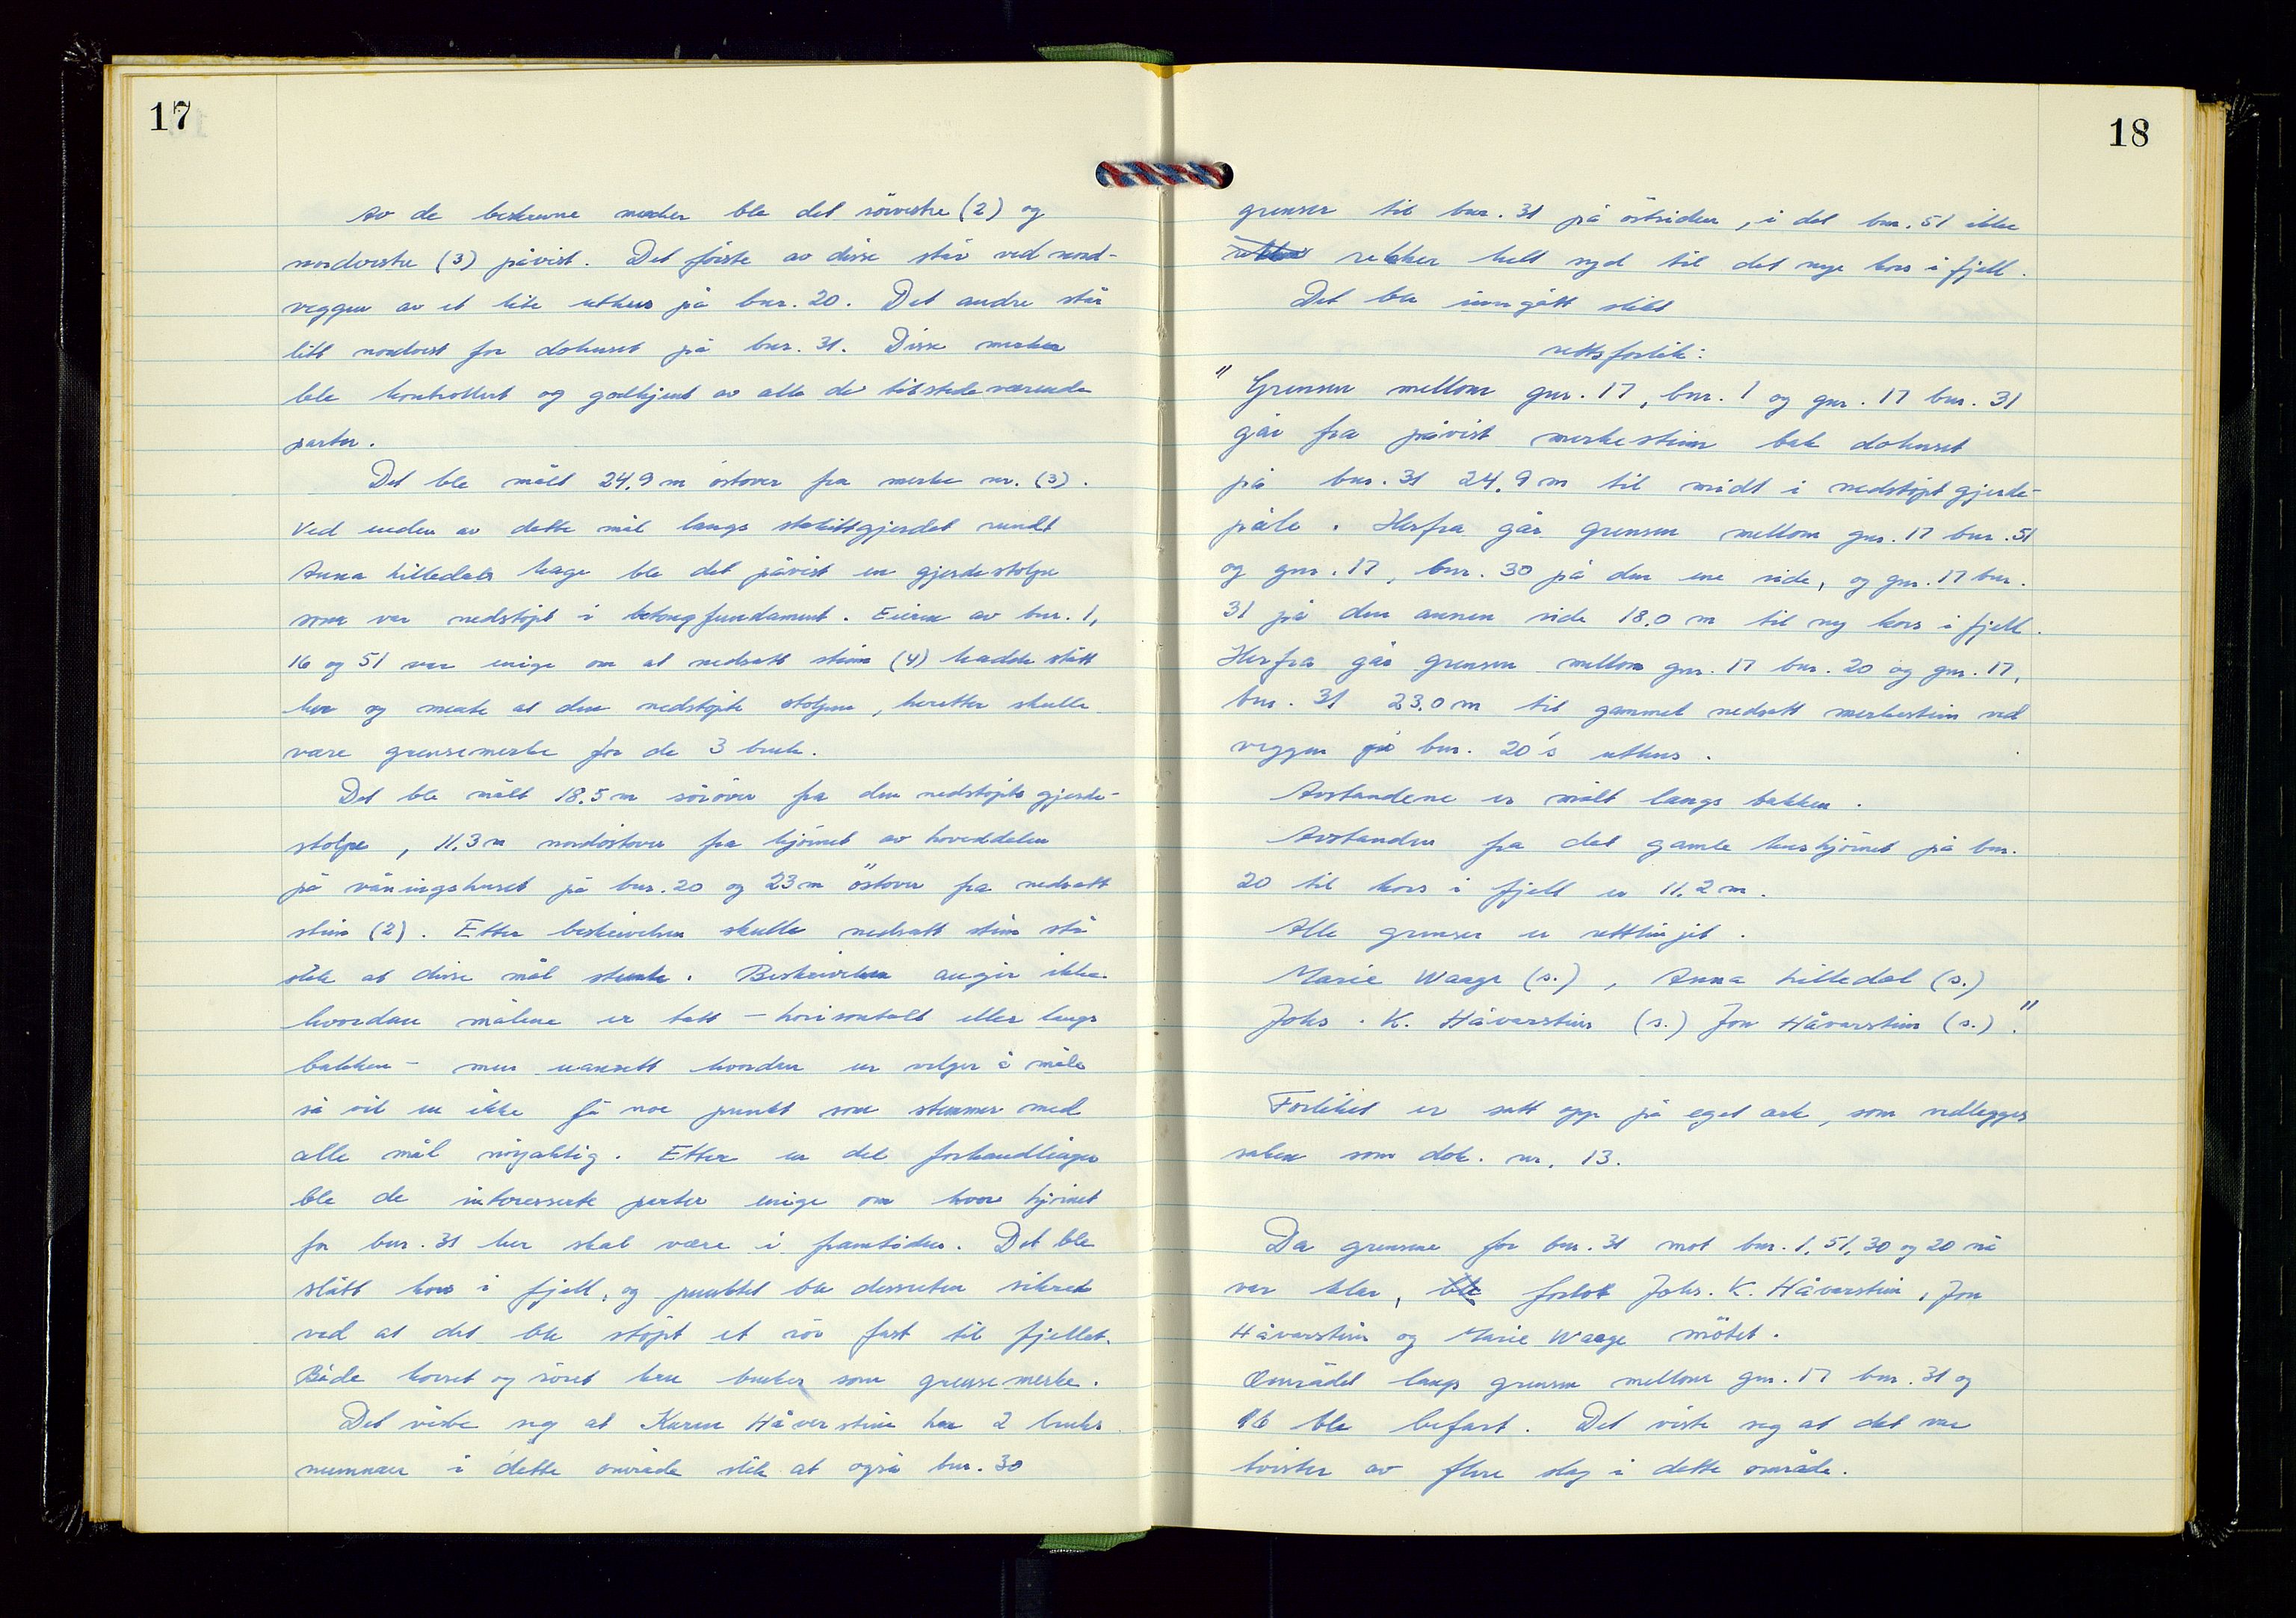 17
Av de beskrevne merker ble det sörvestre (2) og
nordvestre (3) påvist. Det förste av disse står ved nord-
veggen av et lite uthus på bnr. 20. Det andre står
litt nordvest for dohuset på bnr. 31. Disse merker
ble kontrollert og godkjent av alle de tilstedeværende
parter.
Det ble målt 24.9 m östover fra merke nr. (3).
Ved enden av dette mål langs stakittgjerdet rundt
Anna Lilledals hage ble det påvist en gjerdestolpe
som var nedstöpt i betongfundament. Eierne av bnr. 1,
16 og 51 var enige om at nedsatt stein (4) hadde stått
her og mente at den nedstöpte stolpen, heretter skulle
være grensemerke for de 3 bruk.
Det ble målt 18.5 m söröver fra den nedstöpte gjerde-
stolpe, 11.3 m nordöstover fra hjörnet av hoveddelen
på våningshuset på bnr. 20 og 23 m östover fra nedsatt
stein (2). Etter beskrivelsen skulle nedsatt stein stå
slik at disse mål stemte. Beskrivelsen angir ikke
hvordan målene er tatt – horisontalt eller langs
bakken – men uansett hvordan en velger å måle
så vil en ikke få noe punkt som stemmer med
alle mål nöyaktig. Etter en del forhandlinger
ble de interesserte parter enige om hvor hjörnet
for bnr. 31 her skal være i framtiden. Det ble
slått kors i fjell, og punktet ble dessuten sikret
ved at det ble stöpt et rör fast til fjellet.
Både korset og röret kan brukes som grensemerke.
Det viste seg at Karen Håvarstein har 2 bruks
nummer i dette område slik at også bnr. 30
18
grenser til bnr. 31 på östsiden, i det bnr. 51 ikke
rekker helt syd til det nye kors i fjell.
Det ble inngått slikt
rettsforlik:
" Grensen mellom gnr. 17, bnr. 1 og gnr. 17 bnr. 31
går fra påvist merkestein bak dohuset
på bnr. 31 24.9 m til midt i nedstöpt gjerde-
påle. Herfra går grensen mellom gnr. 17 bnr. 51
og gnr. 17, bnr. 30 på den ene side, og gnr. 17 bnr.
31 på den annen side 18.0 m til ny kors i fjell.
Herfra går grensen mellom gnr. 17 bnr. 20 og gnr. 17,
bnr. 31 23.0 m til gammel nedsatt merkestein ved
veggen på bnr. 20's uthus.
Avstandene er målt langs bakken.
Avstanden fra det gamle hushjörnet på bnr.
20 til kors i fjell er 11.2 m.
Alle grenser er rettlinjet.
Marie Waage (s.), Anna Lilledal (s.)
Johs. K. Håvarstein (s.) Jon Håvarstein (s.)."
Forliket er satt opp på eget ark, som vedlegges
saken som dok. nr. 13.
Da grensene for bnr. 31 mot bnr. 1, 51, 30 og 20 nå
var klar, ble forlot Johs. K. Håvarstein, Jon
Håvarstein og Marie Waage mötet.
Området langs grensen mellom gnr. 17 bnr. 31 og
16 ble befart. Det viste seg at det var
tvister av flere slag i dette område.